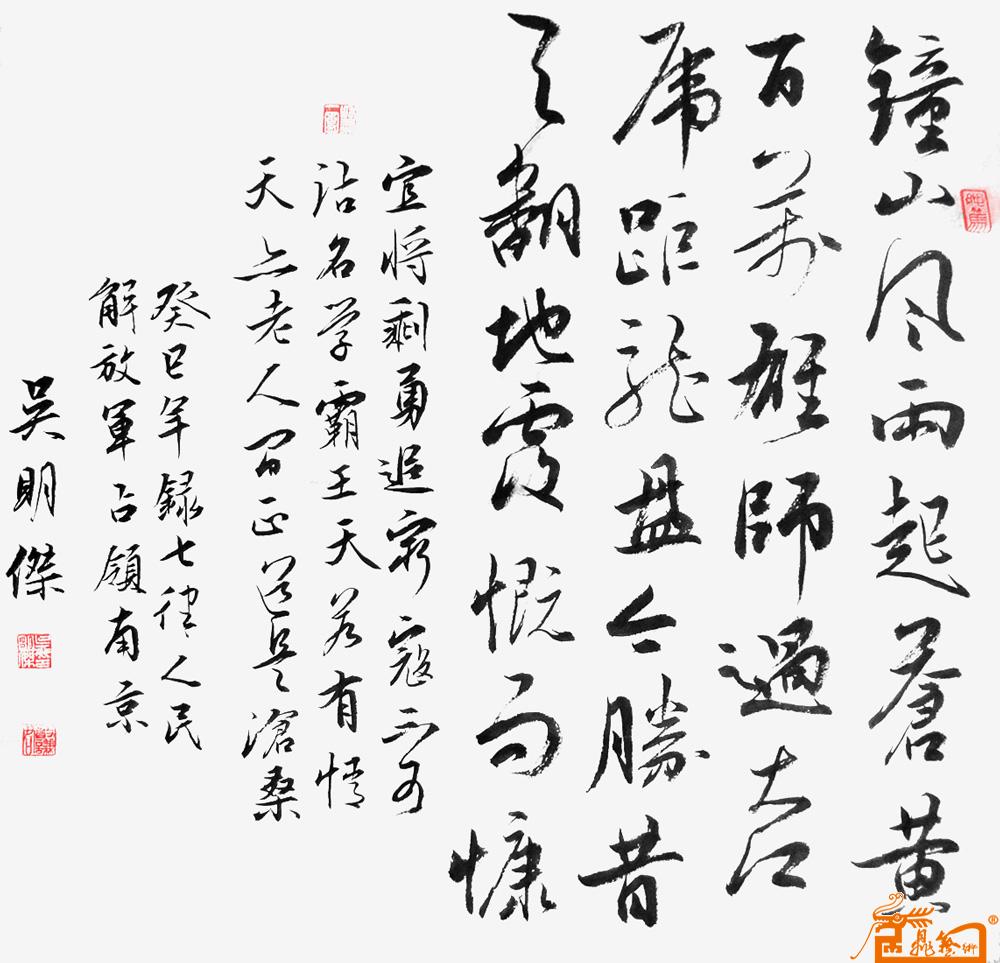 鐘山风雨起蒼黄
百萬雄師過大江
虎距龙盘今勝昔
天翻地覆慨而慷
宜将剩勇追穷寇不可
沽名学霸王天若有情
天亦老人间正道是滄桑
癸巳年録七律人民
解放軍占領南京
吴明傑